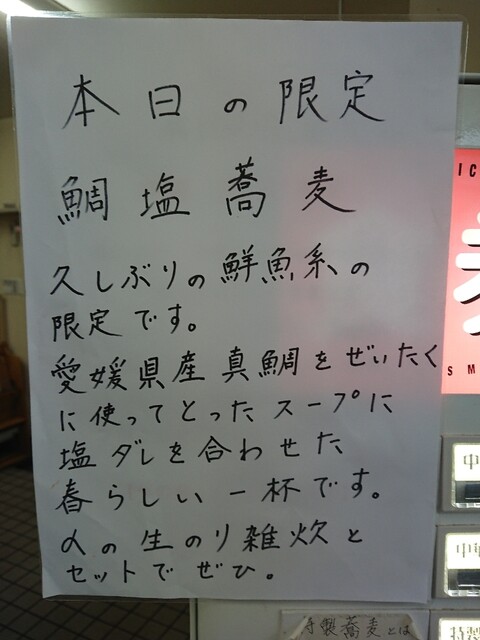 本日の限定
鯛塩蕎麦
久しぶりの鮮魚系の
限定です。
愛媛県産真鯛をぜいたく
に使ってとったスープに
塩ダレを合わせた
春らしい一杯です。
〆の生のり雑炊と
セットでぜひ。
IC
SM
中
中
特製蕎麦とは
特製